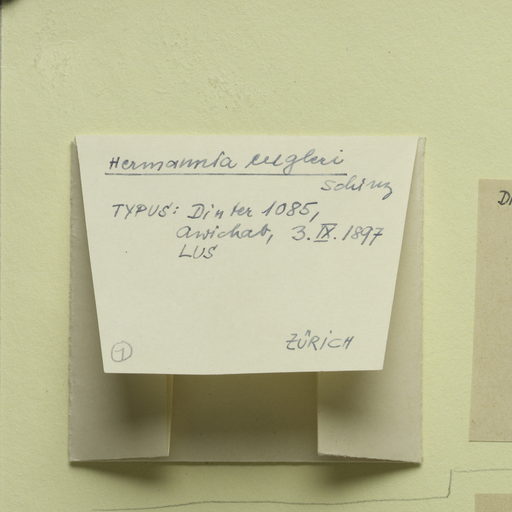 Hermannia engleri
Schinz
TYPUS: Dinter 1085,
Awichab, 3. IX. 1897
LUS
ZÜRICH
1